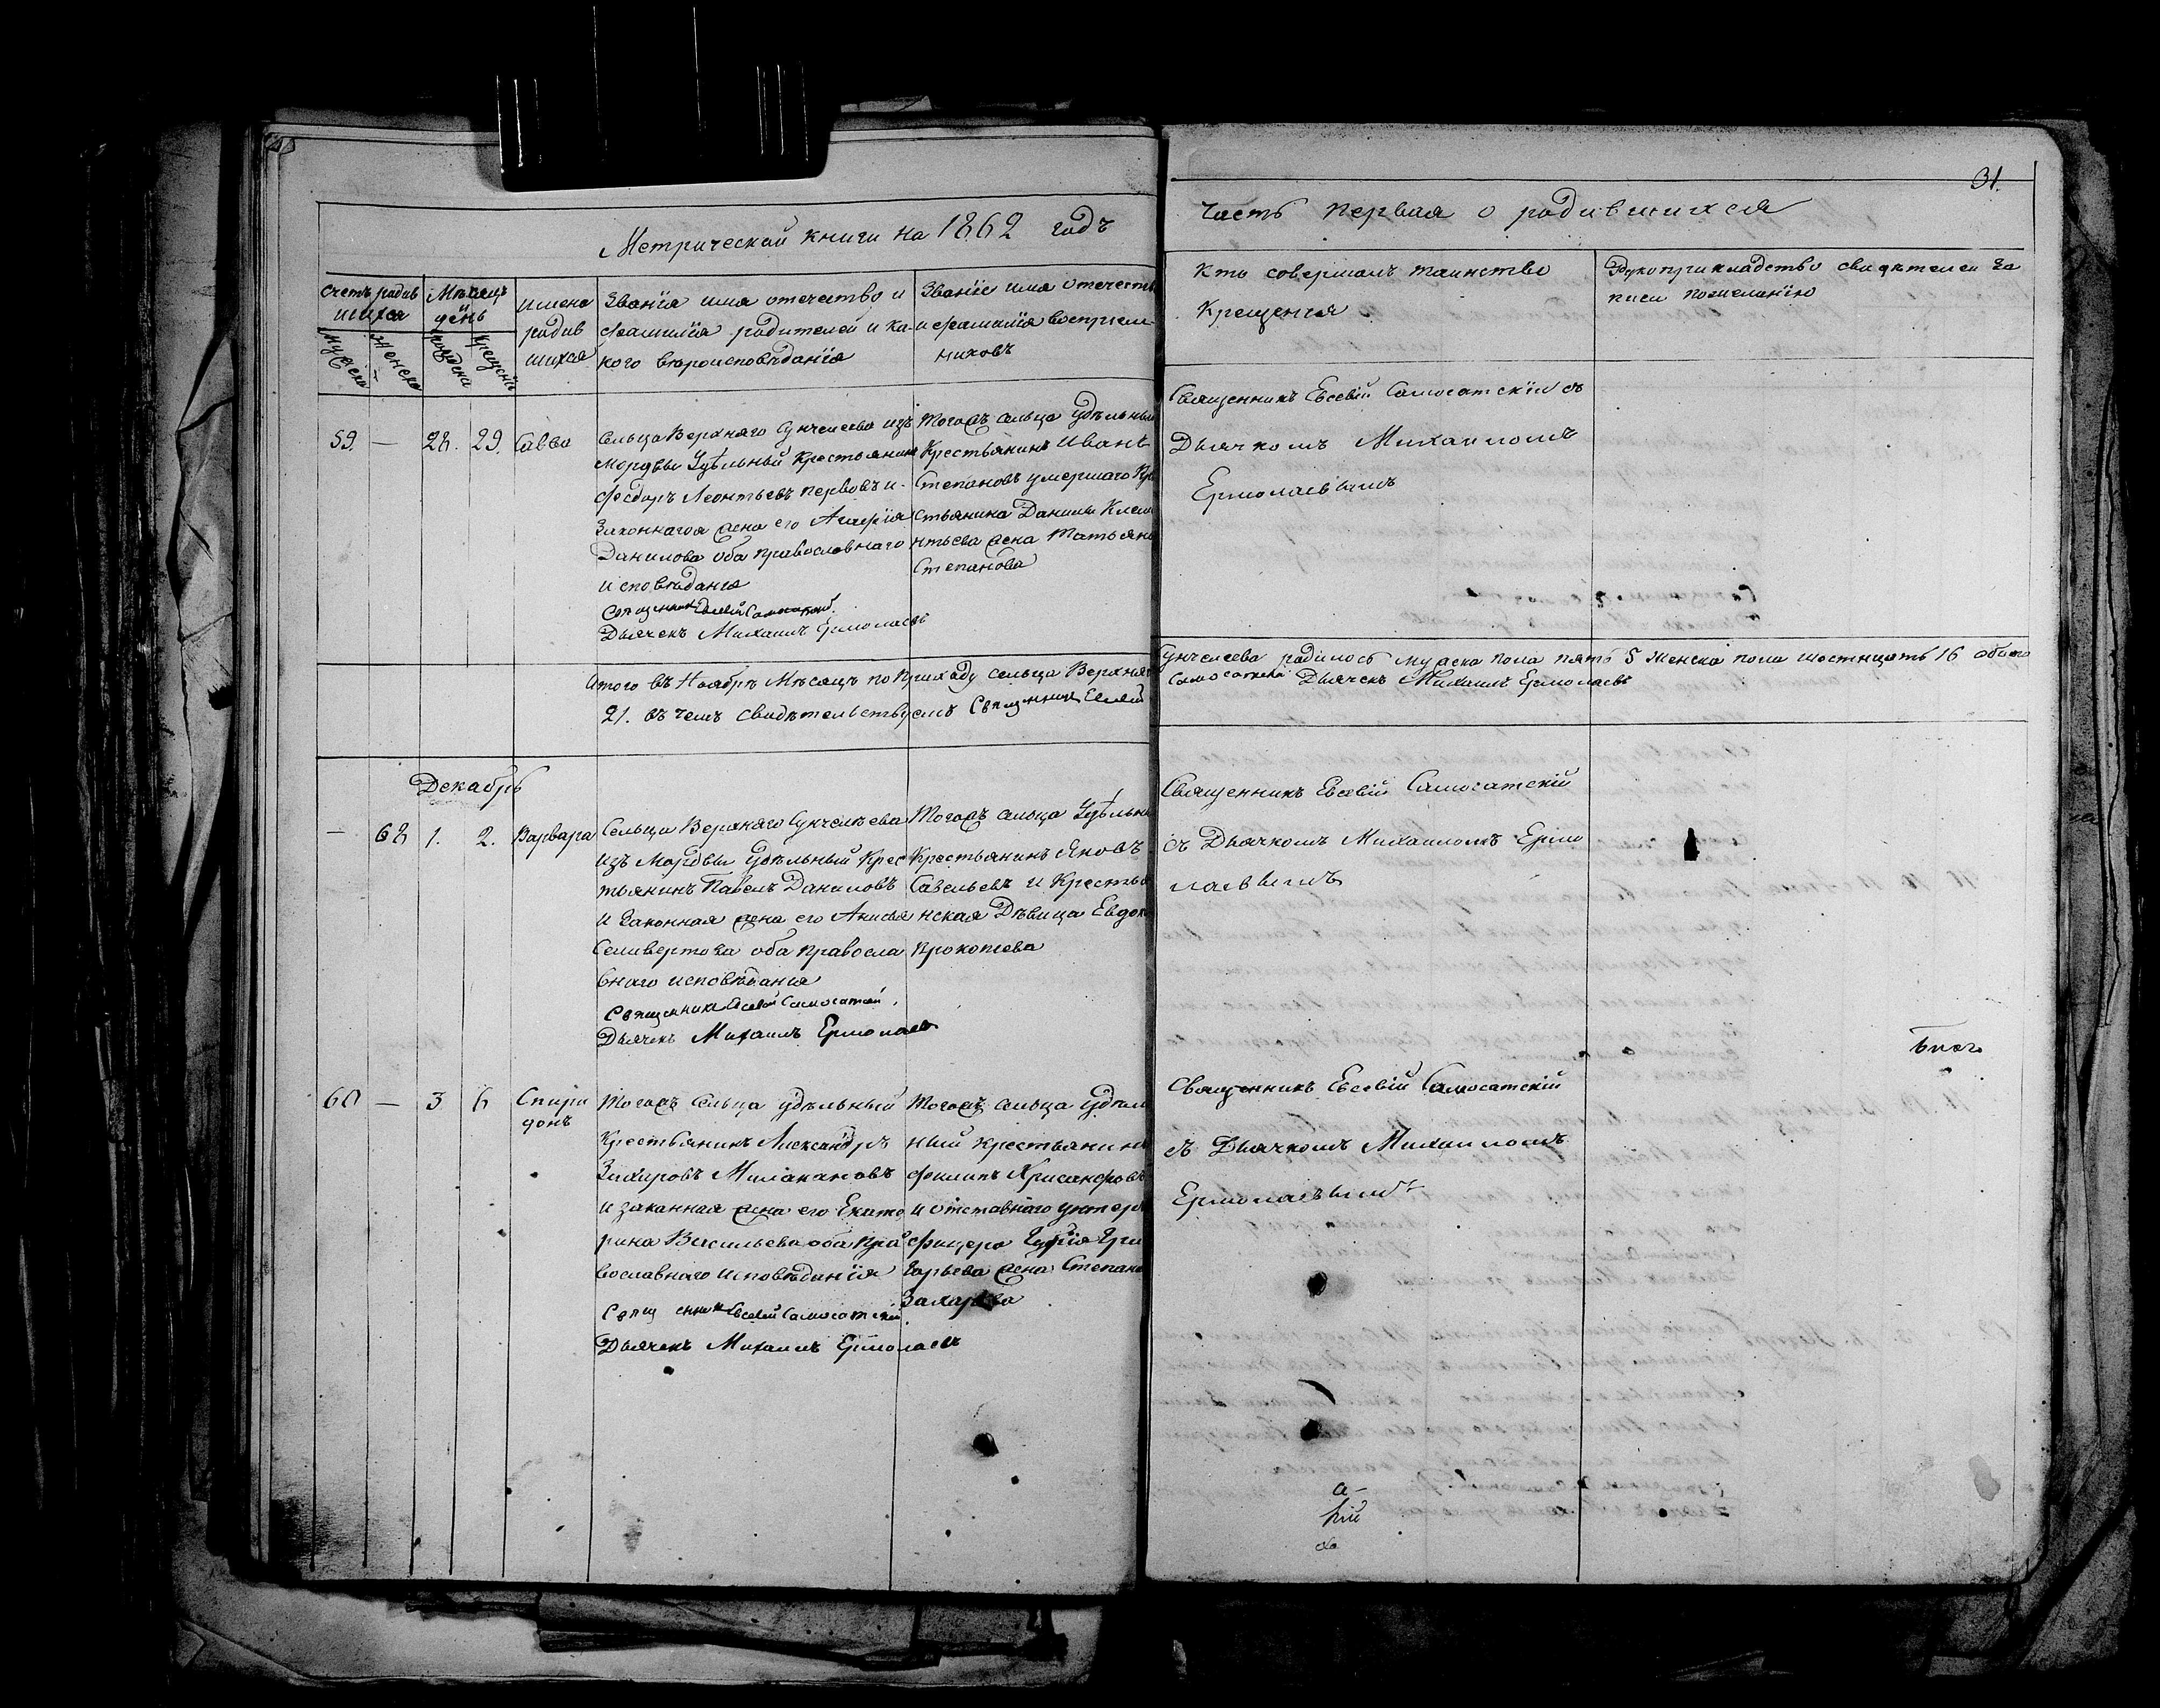 31.
Метрической книги на 1862 годъ
Часть первая о родившихся
Счетъ родив
шихся
Мужска
Женска
Мѣсяцъ
день
рождения
крещенiя
имена
родив
шихся
Званiя имя отечество и
фамилiя родителей и ка-
кого вѣроисповѣданiя
Званiе имя отечеств
и фамилiя воспрiем-
никовъ
Кто совершалъ таинство
Крещенiя
Рукоприкладство свидѣтелей за
писи по желанiю
59. — 28. 29. Савва
Сельца Верхняго Сунчелеева изъ
Мордвы Удѣльный Крестьянинъ
Федоръ Леонтьевъ первовъ и
Законная жена его Агафiя
Данилова оба православнаго
исповѣданiя
Священникъ Евсевiй Самосатскiй.
Дьячекъ Михаилъ Ермолаевъ
Тогожъ сельца Удѣльный
Крестьянинъ Иванъ
Степановъ умершаго Кре
стьянина Данилы Клем
нтьева жена Татьяна
Степанова
Священникъ Евсевiй Самосатскiй съ
Дьячкомъ Михаиломъ
Ермолаевымъ
Итого въ Ноябрѣ Мѣсяцѣ по приходу сельца Верхняго
Сунчелеева родилось мужска пола пять 5 женска пола шестнцать 16 обоего
21. въ чемъ свидѣтельствуемъ Священникъ Евсевiй
Самосатскiй Дьячекъ Михаилъ Ермолаевъ
Декабрь
— 68 1. 2. Варвара
Сельца Верхняго Сунчелѣева
изъ Мордвы Удѣльный Крес
тьянинъ Павелъ Даниловъ
и Законная жена его Анисья
Селивертова оба правосла
внаго исповѣданiя
Священникъ Евсевiй Самосатскiй.
Дьячекъ Михаилъ Ермолаевъ
Тогожъ сельца Удѣльны
Крестьянинъ Яковъ
Савельевъ и Крестья
нская Дѣвица Евдок
Прокопьева
Священникъ Евсевiй Самосатскiй
съ Дьячкомъ Михаиломъ Ермо
лаевымъ
60 — 3 6 Спири
донъ
Тогожъ сельца удѣльный
Крестьянинъ Александръ
Захаровъ
и законная жена его Екате
рина Васильева оба пра
вославнаго исповѣданiя
Священникъ Евсевiй Самосатскiй.
Дьячекъ Михаилъ Ермолаевъ
Тогожъ сельца Удѣль
ный крестьянинъ
Филипъ Хрисанфовъ
и отставнаго унтеръ
фицера Гурiя Гри
горьева жена Степани
Захарова
Священникъ Евсевiй Самосатскiй
съ Дьячкомъ Михаиломъ
Ермолаевымъ